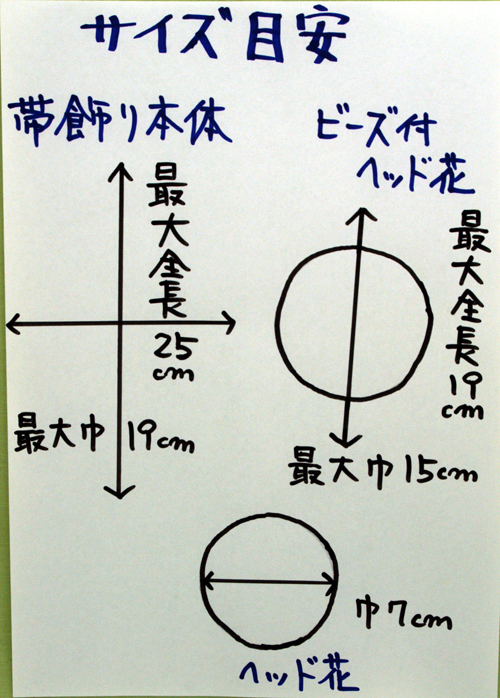 サイズ目安
帯飾り本体
最大全長
25
cm
最大巾 19cm
ビーズ付
ヘッド花
最大全長
19
cm
最大巾 15cm
巾7cm
ヘッド花